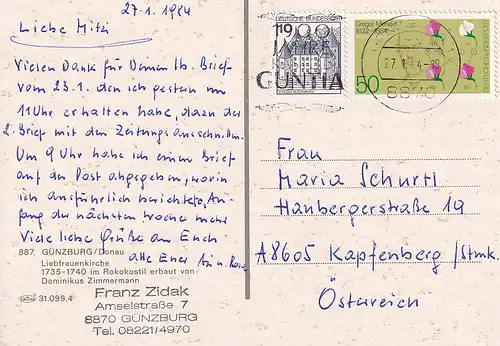 27.1.1984
Liebe Mitzi
Vielen Dank für Deinen lb. Brief
vom 23.1. den ich gestern um
11 Uhr erhalten habe, dazu der
2. Brief mit den Zeitungsausschnitten.
Um 9 Uhr habe ich einen Brief
auf der Post abgegeben, worin
ich ausführlich berichtete, An-
fang der nächsten Woche mehr
Viele liebe Grüße an Euch
alle Euer
887. GÜNZBURG/Donau
Liebfrauenkirche
1735-1740 im Rokokostil erbaut von
Dominikus Zimmermann
31.099.4
Franz Zidak
Amselstraße 7
8870 GÜNZBURG
Tel. 08221/4970
DEUTSCHE BUNDESPOST
19
JAHRE
GUNTIA
Gregor Mendel
1822-1884
50
27.1.84-18
8870
Frau
Maria Schurtl
Hanbergerstraße 19
A8605 Kapfenberg/Stmk.
Österreich